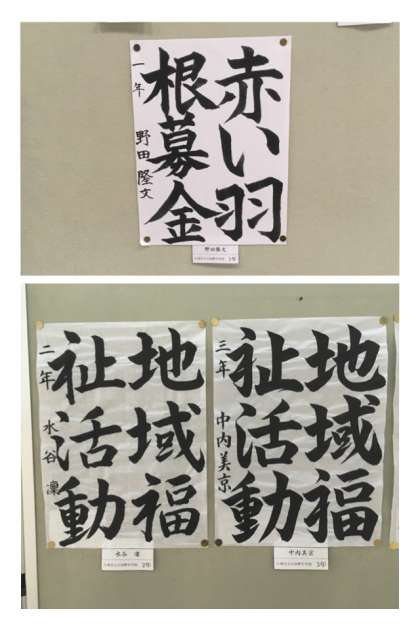 赤い羽
根募金
一年 野田隆文
野田隆文
1年
地域福
祉活動
二年 水谷凛
水谷 凛
2年
地域福
祉活動
三年 中内美京
中内美京
3年